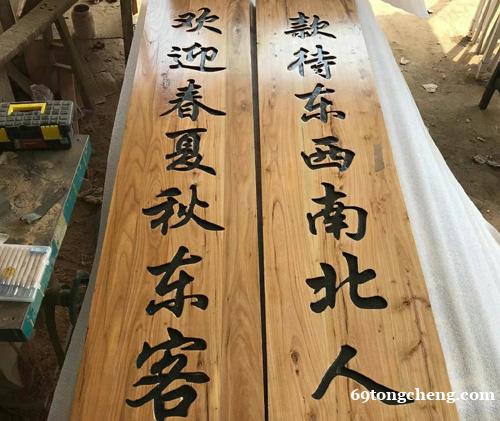 欢迎春夏秋东客
款待东西南北人
69tongcheng.com